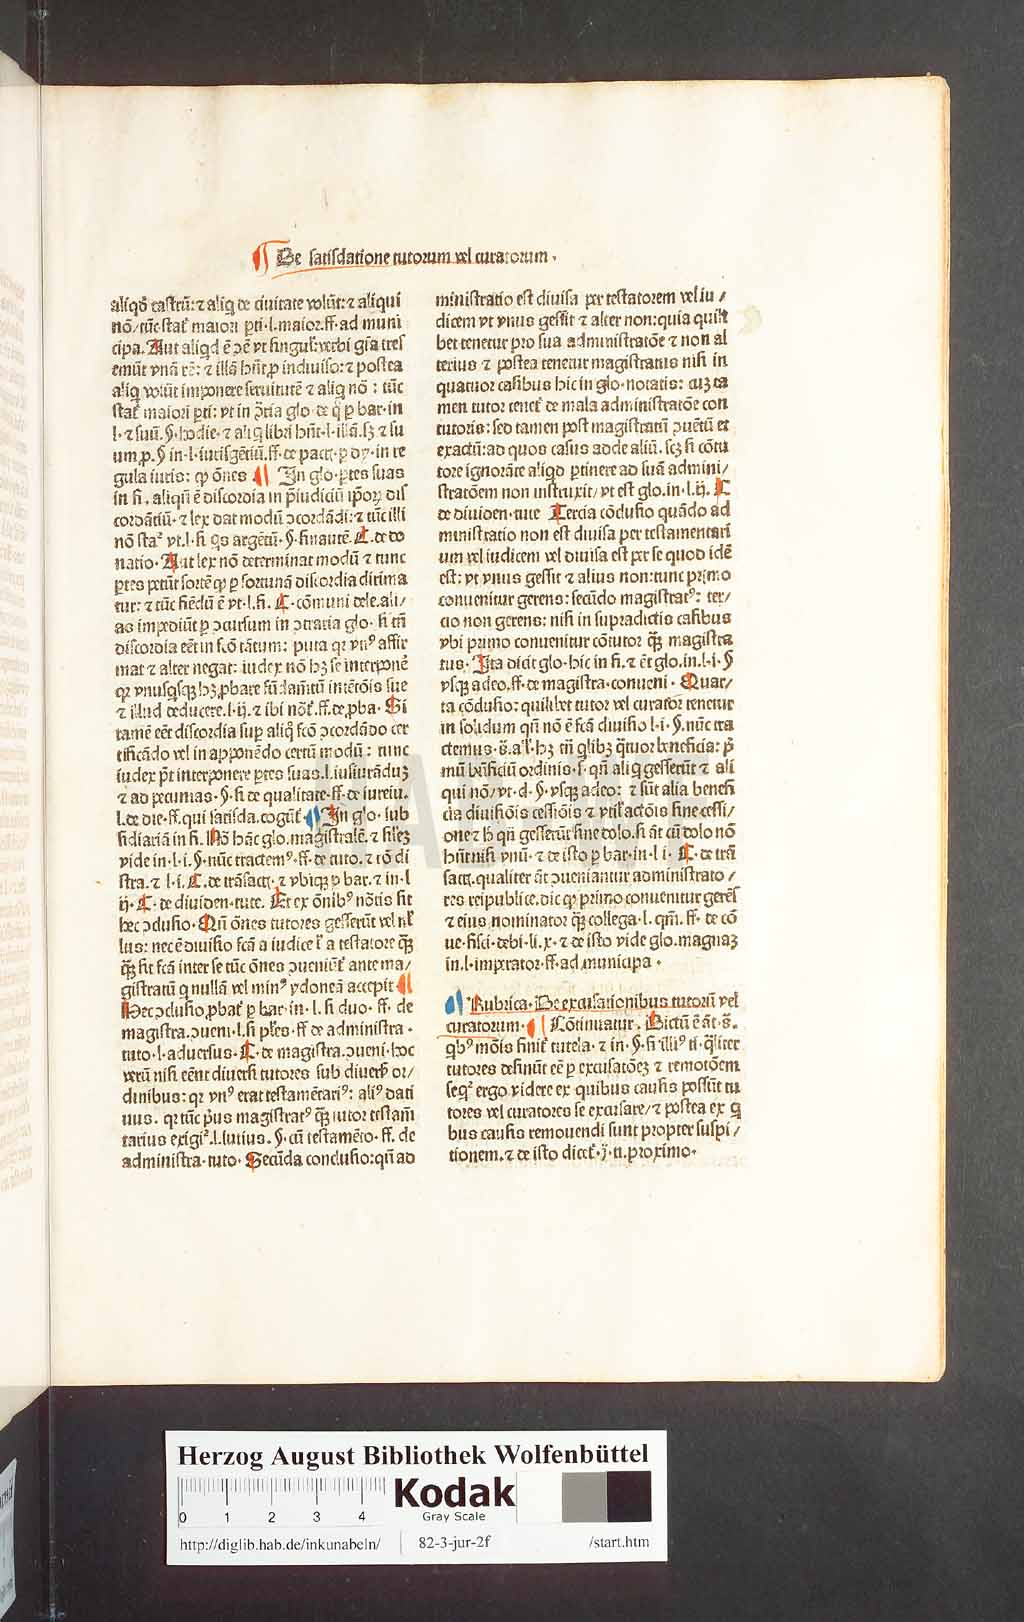 De satisdatione tutorum vel curatorum .
aliqd castrū: ⁊ aliq de ciuitate volūt: ⁊ aliqui
nō/ tūc stat maiori pti·l·maior.ff·ad muni
cipa. Aut aliqd ē ɔē vt singul: verbi gra tres
emūt vnā rē: ⁊ illā hnt ꝓ indiuiso: ⁊ postea
aliq volūt imponere seruitutē ⁊ aliq nō : tūc
l·⁊ suū.§·hodie·⁊
gula iuris: qꝫ ōnes In glo·ptes suas
in fi. aliqn ē discordia in piudiciū ipoꝝ dis
cordātiū·⁊ lex dat modū ɔcordādi: ⁊ tūc illi
natio· Aut lex nō determinat modū ⁊ tunc
ptes petūt sortē qꝫ p fortunā discordia dirima
tur: ⁊ tūc fiēdū ē vt·l·fi. C·cōmuni dele.ali/
as impediūt p ɔcursum in ɔtraria glo· si tn
discordia eēt in fcō tātum: puta qr vnꝰ affir
mat ⁊ alter negat: iudex nō hꝫ se interponē
⁊ illud deducere.l·ij.⁊ ibi nōt.ff.de ꝓba· Si
tamē eēt discordia sup aliq fcō ɔcordādo cer
tificādo vel in apponēdo certū modū: tunc
iudex pt interponere ptes suas.l.iusiurāduꝫ
⁊ ad pecunias·§·si de qualitate·ff·de iureiu.
l.de die·ff.qui satisda.cogūt· In glo·sub
sidiariā in fi. No hāc glo.magistralē·
vide in·l·i.§·nūc tractemꝰ·ff·de tuto.⁊ rō di
stra.⁊ l·i.C·de trāsact·⁊ vbiqꝫ p bar.⁊ in·l
ij·C·de diuiden·tute. Et ex ōnibꝰ nōtis sit
hec ɔclusio· Qn ōnes tutores gesserūt vel
lus: nec ē diuisio fcā a iudice
sit fcā inter se tūc ōnes ɔueniūt ante ma/
gistratū q nullā vel minꝰ ydoneā accepit
Hec ɔclusio ꝓbat p bar·in·l·si duo·ff·de
magistra.ɔueni·l.si plres·ff·de administra·
tuto·l·aduersus·C·de magistra.ɔueni·hoc
verū nisi eēnt diuersi tutores sub diuerso or/
dinibus: qr vnꝰ erat testamētariꝰ: aliꝰ dati
uus. qr tūc prius magistratꝰ tutor testam
tarius exigi.l.lutius.§·cū testamēto·ff.de
administra·tuto· Secūda conclusio: qn ad
ministratio est diuisa per testatorem vel iu/
dicem vt vnus gessit ⁊ alter non: quia quilt
bet tenetur pro sua administratōe ⁊ non al
terius ⁊ postea tenetur magistratus nisi in
quatuor casibus hic in glo·notatis: cuꝫ ta
men tutor tenet de mala administratōe con
tutoris: sed tamen post magistratū ɔuētū et
exactū: ad quos casus adde aliū. scꝫ si cōtu
tore ignorāte aliqd ptinere ad suā admini/
stratōem non instruxit/ vt est glo.in·l·ij. C
de diuiden·tute Tercia cōclusio quādo ad
ministratio non est diuisa per testamentari
um vel iudicem vel diuisa est per se quod idē
est: vt vnus gessit ⁊ alius non: tunc primo
conuenitur gerens: secūdo magistratꝰ: ter/
cio non gerens: nisi in supradictis casibus
vbi primo conuenitur cōtutor qꝫ magistra
tus. Ita dicit glo·hic in fi.⁊ ē glo.in.l·i·§
vsqꝫ adeo.ff·de magistra·conueni· Quar/
ta cōclusio: quilibet tutor vel curator tenetur
in solidum qn nō ē fcā diuisio l·i·§.nūc tra
mū bnficiū ordinis·s·qn aliq gesserūt ⁊ ali
qui nō/ vt·d·§·vsqꝫ adeo: ⁊ sūt alia benefi
cia diuisiōis cessiōis ⁊ vtil actōis sine cessi/
one ⁊ h qn gesserūt sine dolo.si āt cū dolo nō
hnt nisi vnū·⁊ de isto p bar·in·l·i· C·de trā
sact.qualiter āt ɔueniantur administrato/
res reipublice.dic qꝫ primo conuenitur gerēs
⁊ eius nominator qꝫ collega·l·qm.ff·de cō
ue·fisci·debi·li.x·⁊ de isto vide glo.magnaꝫ
in.l·imperator·ff·ad municipa·
Rubrica·De excusationibus tutorū vel
curatorum· Cōtinuatur. Dictū ē āt·s.
qbꝰ mōis finit tutela·⁊ in·§·si illiꝰ ti·qliter
tutores desinūt eē p excusatōeꝫ ⁊ remotōem
seqr ergo videre ex quibus causis possūt tu
tores vel curatores se excusare/ ⁊ postea ex q
bus causis remouendi sunt propter suspi/
tionem.⁊ de isto dicet·j·ti.proximo·
Herzog August Bibliothek Wolfenbüttel
0 1 2 3 4
Kodak
Gray Scale
http://diglib.hab.de/inkunabeln/ 82-3-jur-2f /start.htm